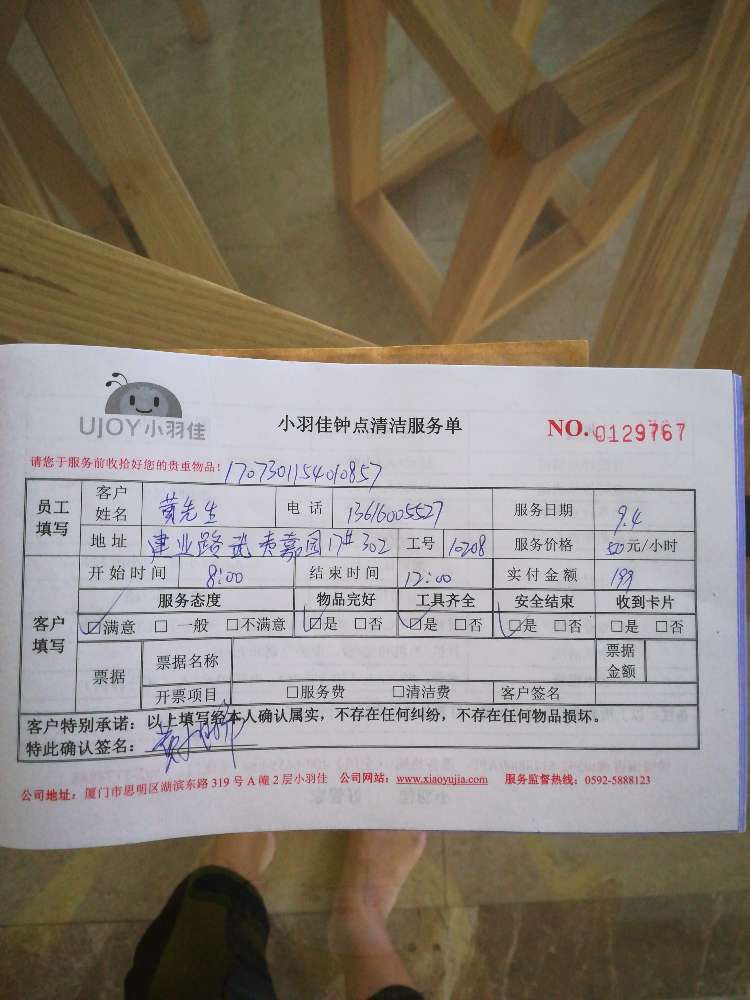 UJOY小羽佳
小羽佳钟点清洁服务单
NO. 0129767
请您于服务前收拾好您的贵重物品！1707301154010857
员工填写 客户姓名 黄先生 电话 13616005527 服务日期 9.4
地址 建业路武夷嘉园17#302 工号 10208 服务价格 50元/小时
客户填写 开始时间 8:00 结束时间 12:00 实付金额 199
服务态度 物品完好 工具齐全 安全结束 收到卡片
☑满意 □一般 □不满意 ☑是 □否 ☑是 □否 ☑是 □否 □是 □否
票据 票据名称 票据金额
开票项目 □服务费 □清洁费 客户签名
客户特别承诺：以上填写经本人确认属实，不存在任何纠纷，不存在任何物品损坏。
特此确认签名：
公司地址：厦门市思明区湖滨东路319号A幢2层小羽佳 公司网站：www.xiaoyujia.com 服务监督热线：0592-5888123